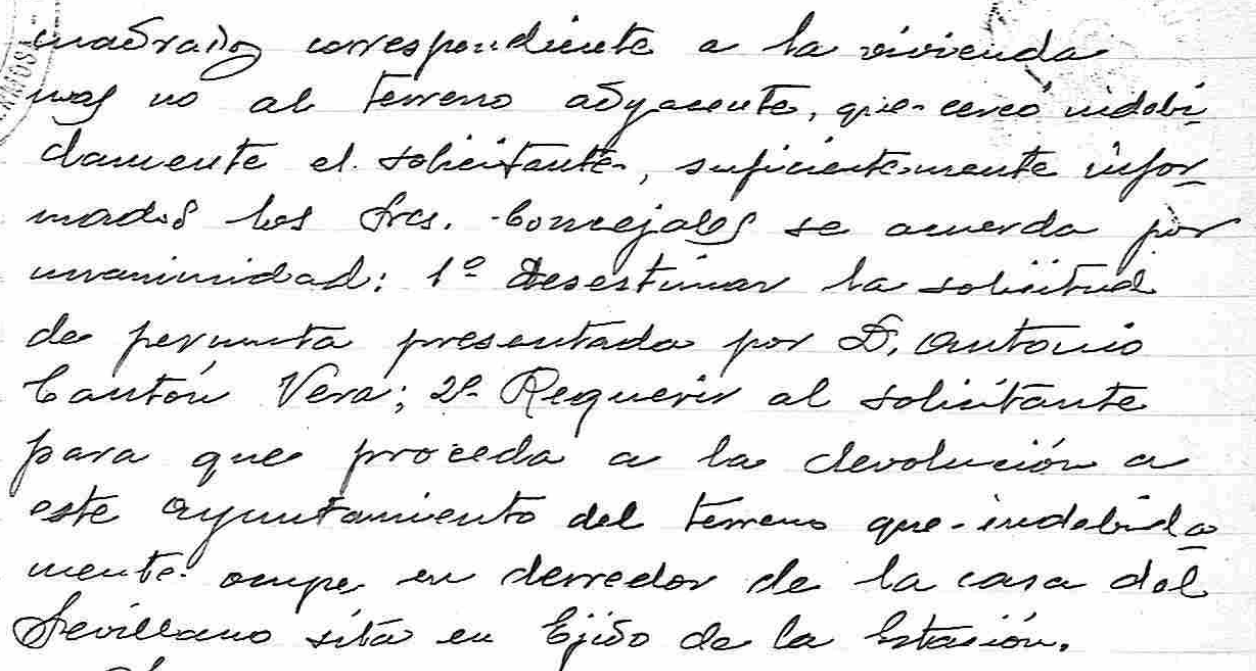 cuadrados correspondiente a la vivienda
mas no al terreno adyacente, que cercó indebi_
damente el solicitante, suficientemente infor_
mados los Srs. Concejales se acuerda por
unanimidad: 1º Desestimar la solicitud
de permuta presentada por D. Antonio
Cantón Vera; 2º Requerir al solicitante
para que proceda a la devolución a
este Ayuntamiento del terreno que indebida
mente ocupe en derredor de la casa del
Sevillano sita en Ejido de la Estación.